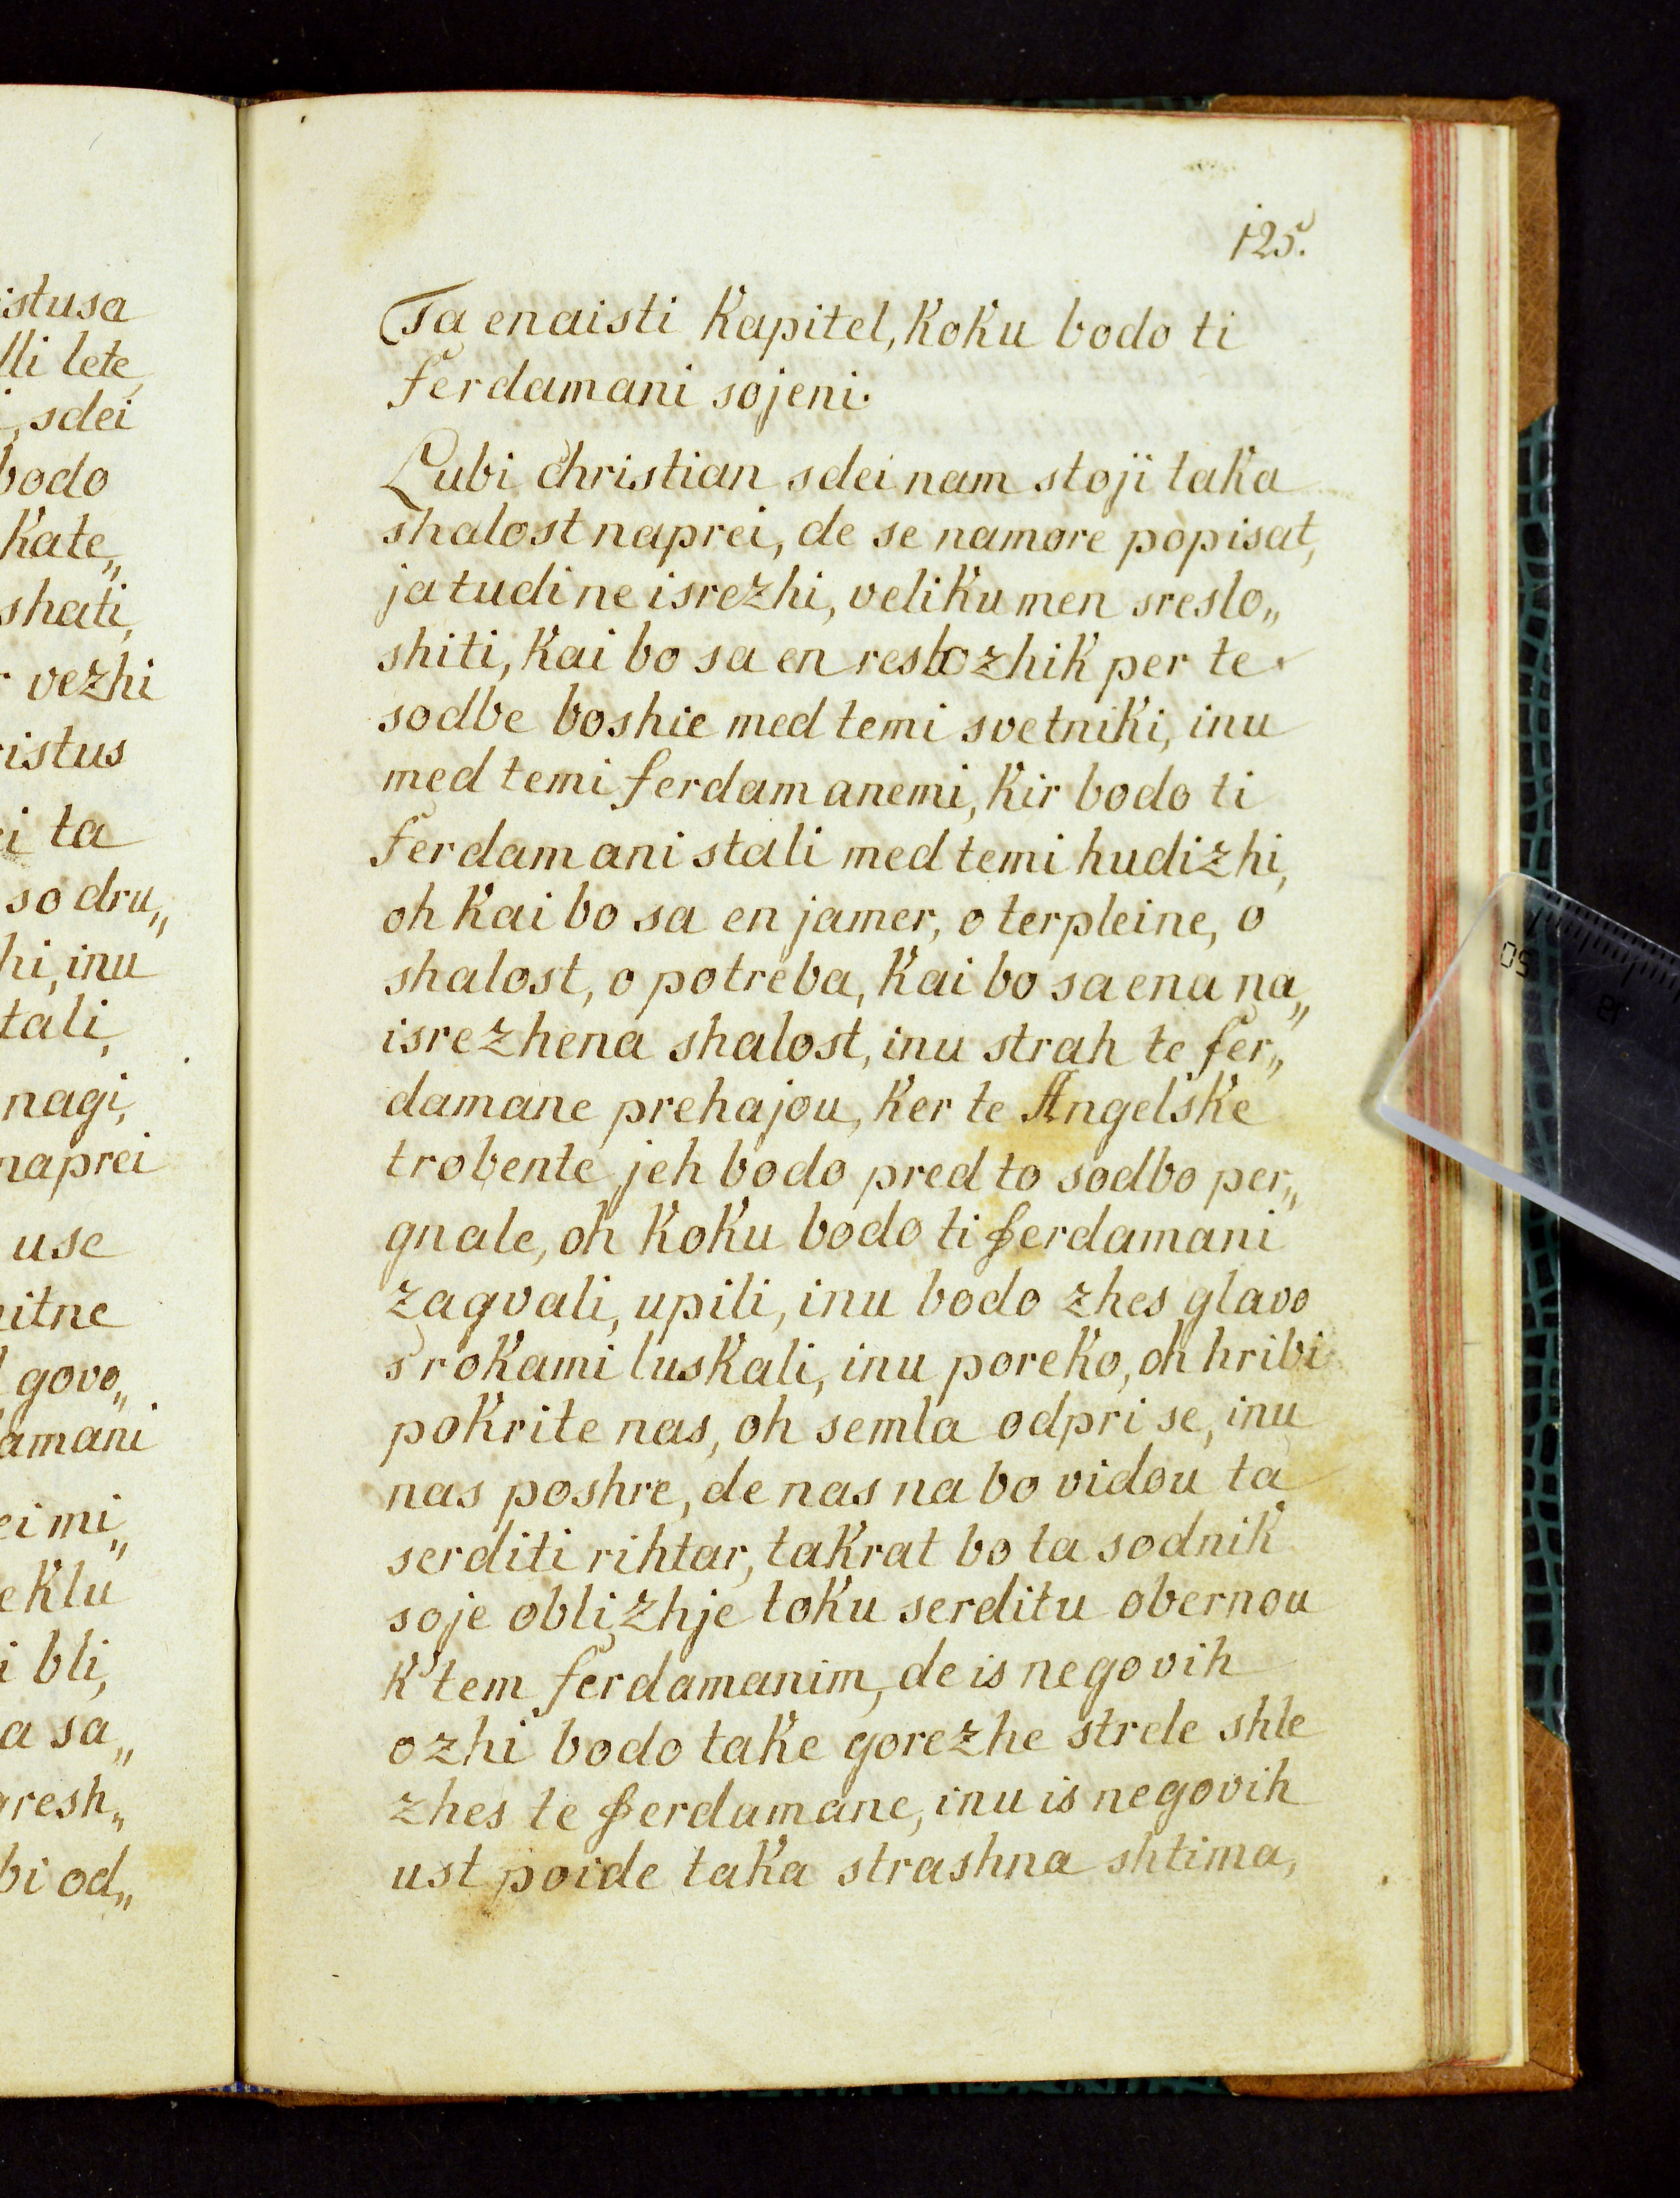 istusa
lli lete,
i, sdei
bodo
kate„
shati,
r vezhi
ristus
ei ta
so dru„
hi, inu
tali,
nagi,
naprei
use
nitne
govo„
amani
ei mi„
eklu
i bli,
a sa„
gresh„
bi od„
125.
Ta enaisti kapitel, koku bodo ti
ferdamani sojeni.
Lubi christian sdei nam stoji taka
shalost naprei, de se namore popisat,
ja tudi ne isrezhi, veliku men sreslo„
shiti, kai bo sa en reslozhik per te
sodbe boshie med temi svetniki, inu
med temi ferdamanemi, kir bodo ti
ferdamani stali med temi hudizhi,
oh kai bo sa en jamer, o terpleine, o
shalost, o potreba, kai bo sa ena na„
isrezhena shalost, inu strah te fer„
damane prehajou, ker te Angelske
trobente jeh bodo pred to sodbo per„
gnale, oh koku bodo ti ferdamani
zagvali, upili, inu bodo zhes glavo
s'rokami luskali, inu poreko, oh hribi
pokrite nas, oh semla odpri se, inu
nas poshre, de nas na bo vidou ta
serditi rihtar, takrat bo ta sodnik
soje oblizhje toku serditu obernou
k'tem ferdamanim, de is negovih
ozhi bodo take gorezhe strele shle
zhes te ferdamane, inu is negovih
ust poide taka strashna shtima,